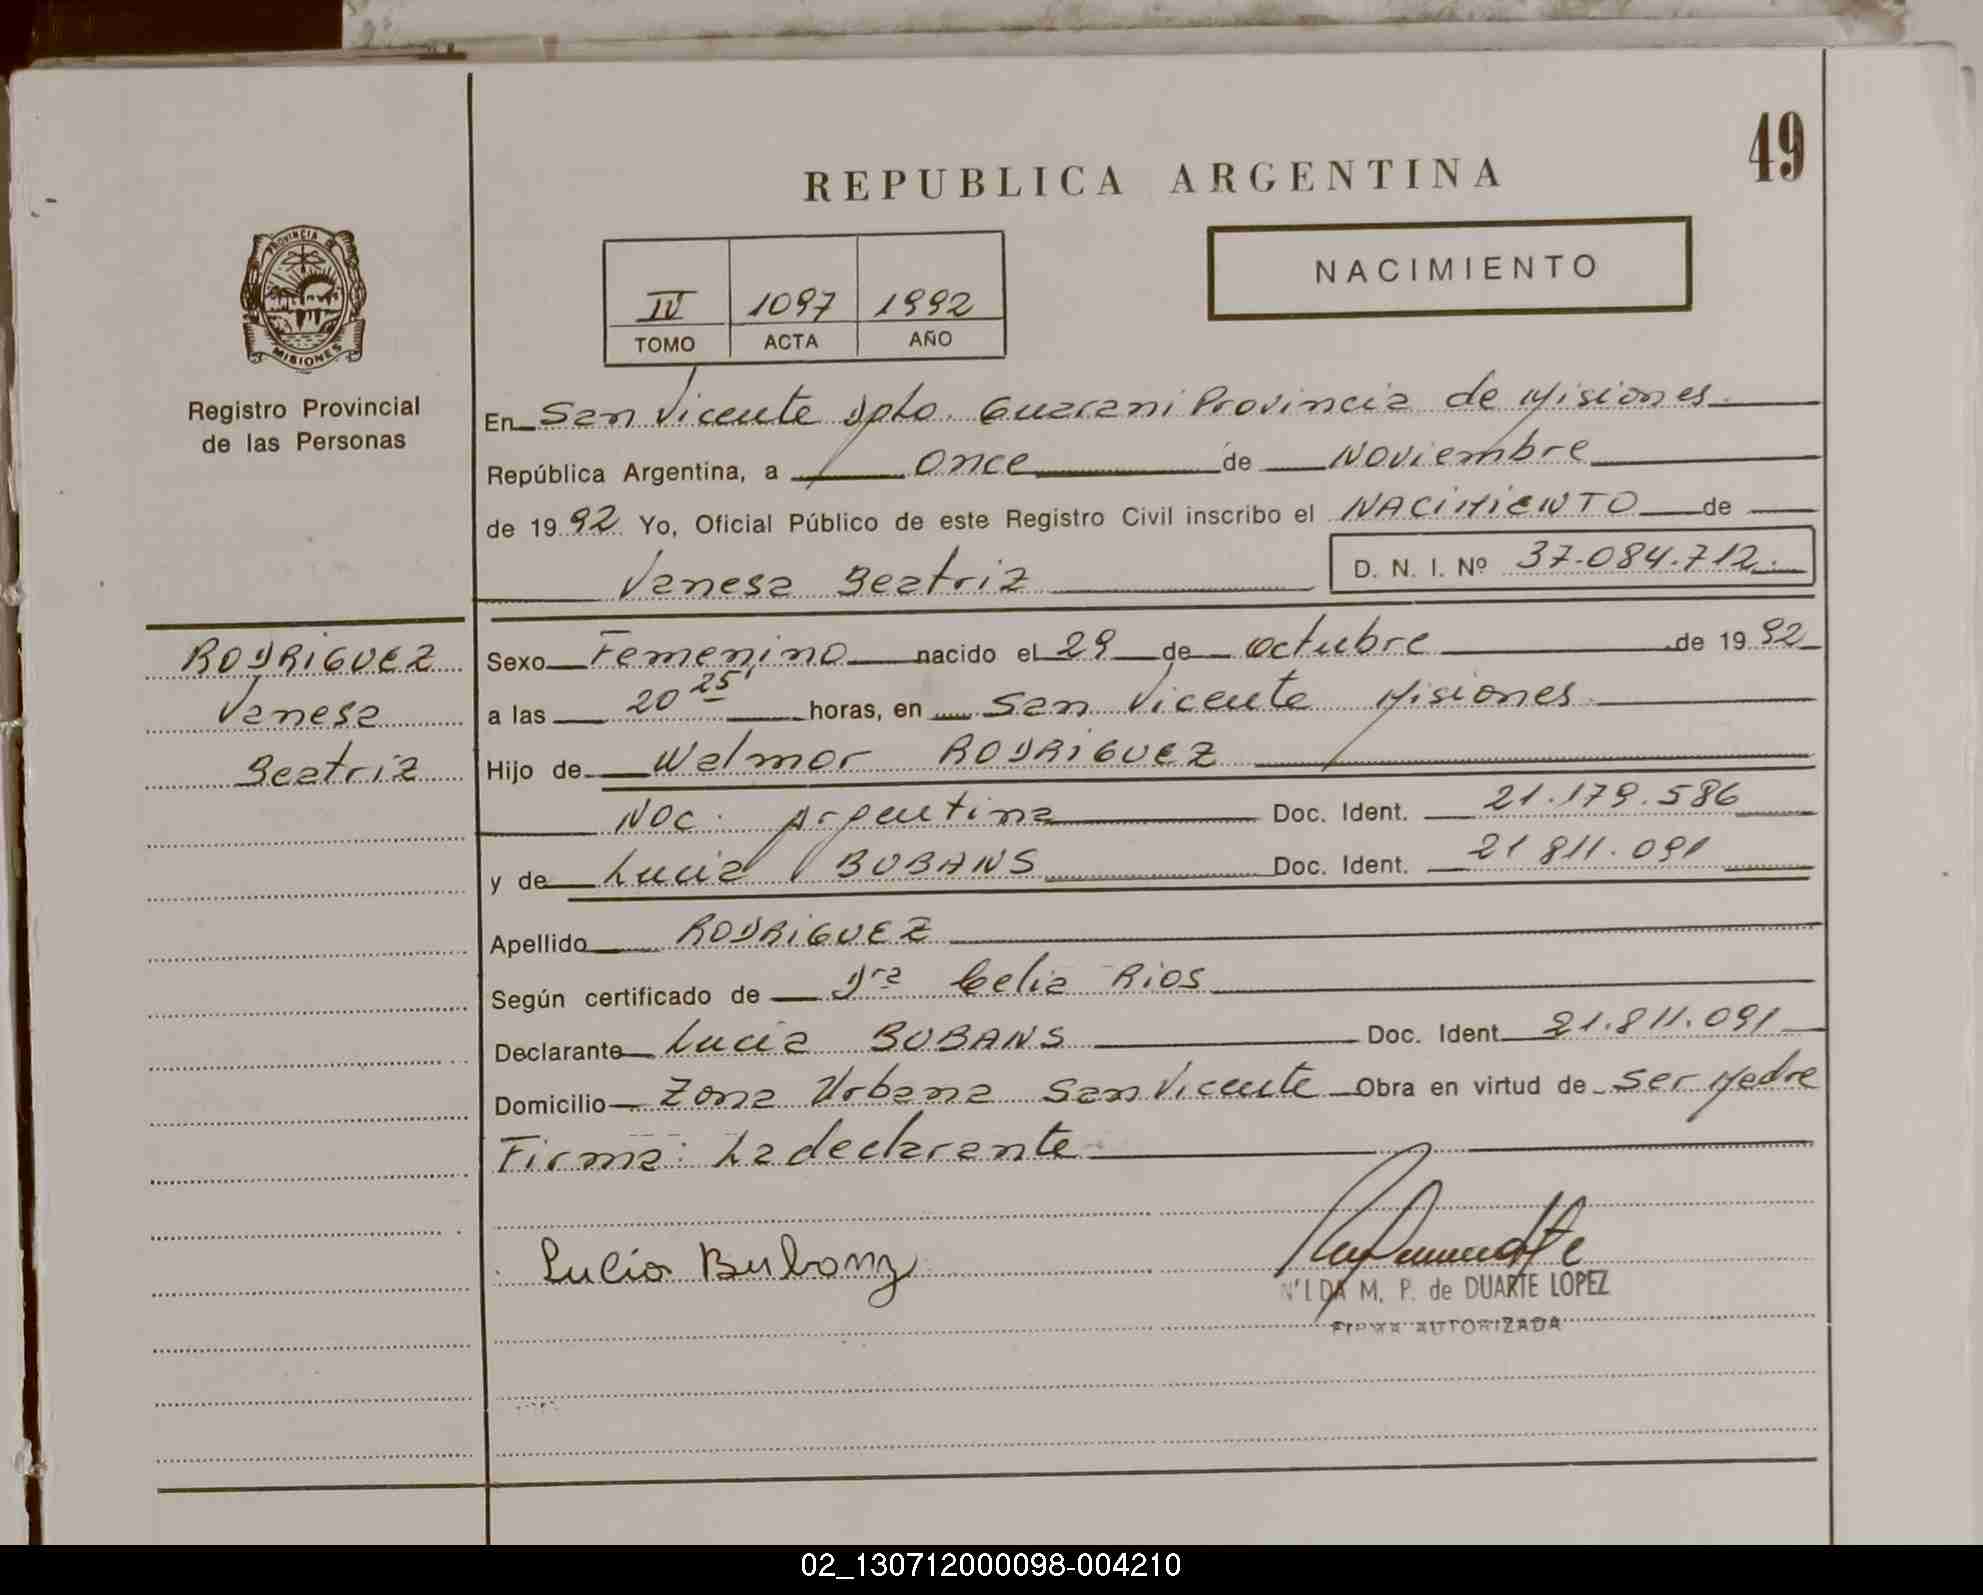 49
REPUBLICA ARGENTINA
NACIMIENTO
IV 1097 1992
TOMO ACTA AÑO
PROVINCIA DE
MISIONES
Registro Provincial
de las Personas
En San Vicente Dpto. Guarani Provincia de Misiones
República Argentina, a once de Noviembre
de 1992 Yo, Oficial Público de este Registro Civil inscribo el NACIMIENTO de
Vanesa Beatriz D. N. I. Nº 37.084.712.
RODRIGUEZ
Vanesa
Beatriz
Sexo Femenino nacido el 29 de octubre de 1992
a las 20 25' horas, en San Vicente Misiones
Hijo de Walmor RODRIGUEZ
Nac. Argentina Doc. Ident. 21.179.586
y de Lucia BUBANS Doc. Ident. 21 811.091
Apellido RODRIGUEZ
Según certificado de Dra Celia Rios
Declarante Lucia BUBANS Doc. Ident. 21.811.091
Domicilio Zona Urbana San Vicente Obra en virtud de ser Madre
Firma: La declarante
Lucia Bubanz
NILDA M. P. de DUARTE LOPEZ
FIRMA AUTORIZADA
02_130712000098-004210